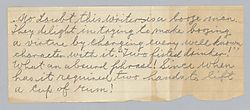 No doubt this writer is a booze-man.
They delight in trying to make boozing
a virtue by charging every well known
character with it. "Two fisted drinker"!
What an absurd phrase! Since when
has it required two hands to lift
a cup of rum!